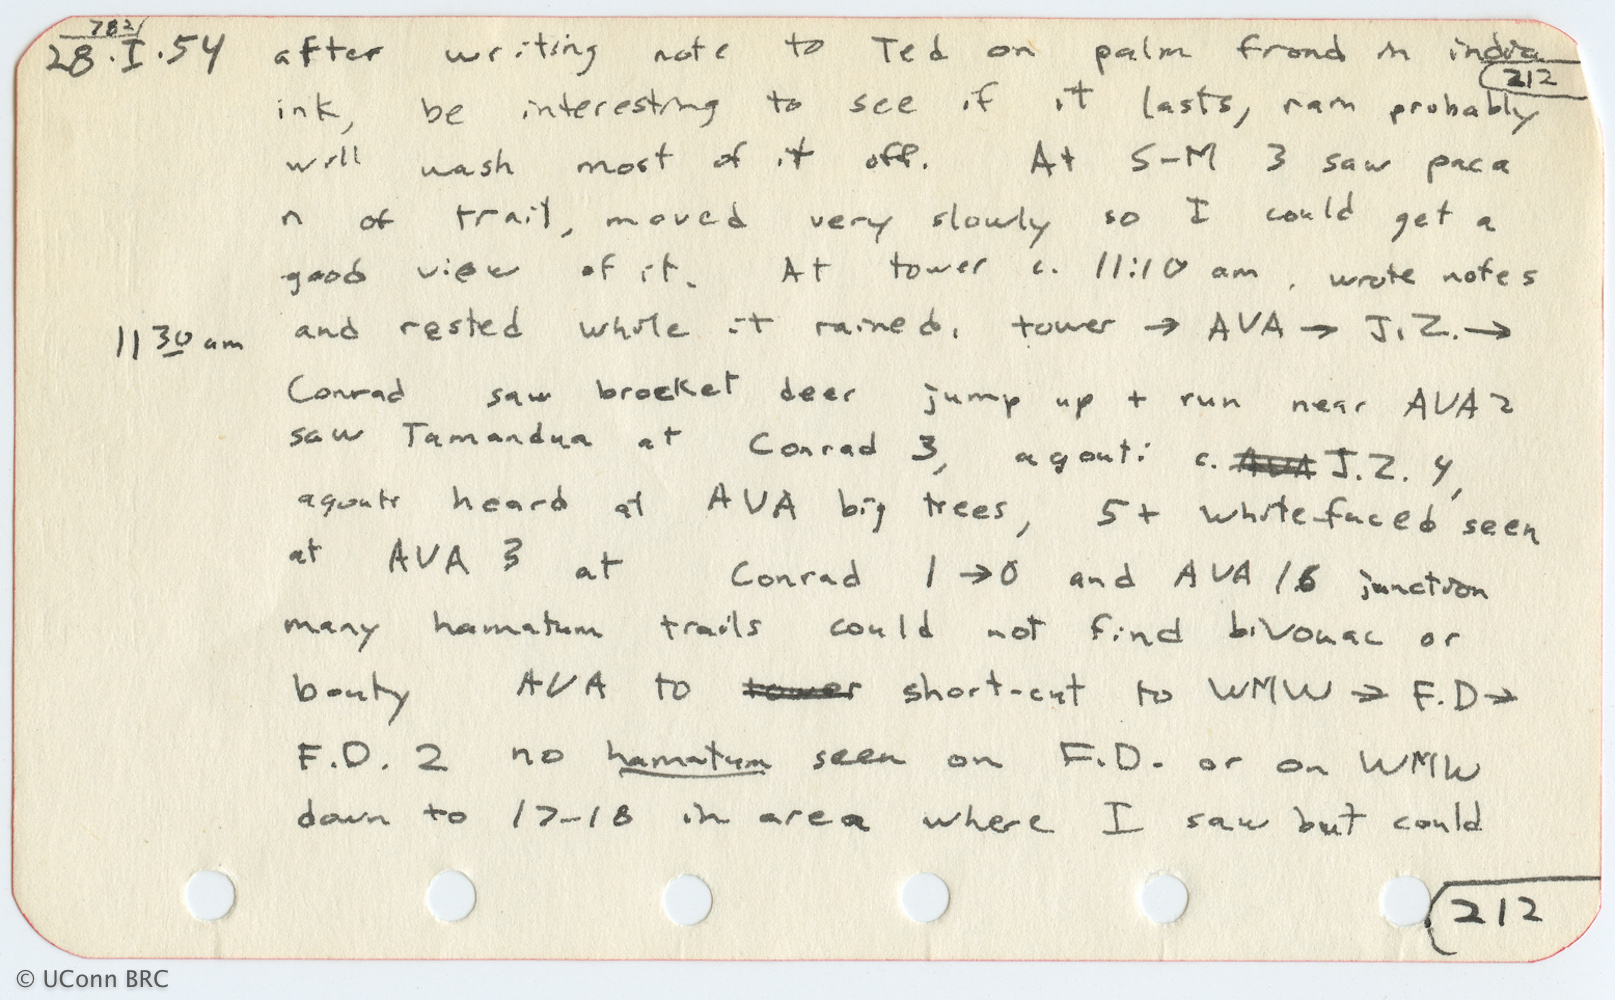 782
28.I.54 after writing note to Ted on palm frond in india
212
ink, be interesting to see if it lasts, rain probably
will wash most of it off. At S-M 3 saw paca
n of trail, moved very slowly so I could get a
good view of it. At tower c. 11:10 am, wrote notes
11 30 am and rested while it rained. tower → AVA → J.Z. →
Conrad saw brocket deer jump up + run near AVA 2
saw Tamandua at Conrad 3, agouti c. AVA J.Z. 4,
agouti heard at AVA big trees, 5+ white-faced seen
at AVA 3 at Conrad 1 → 0 and AVA 16 junction
many hamatum trails could not find bivouac or
booty AVA to tower short-cut to WMW → F.D →
F.D. 2 no hamatum seen on F.D. or on WMW
down to 17-18 in area where I saw but could
212
© UConn BRC